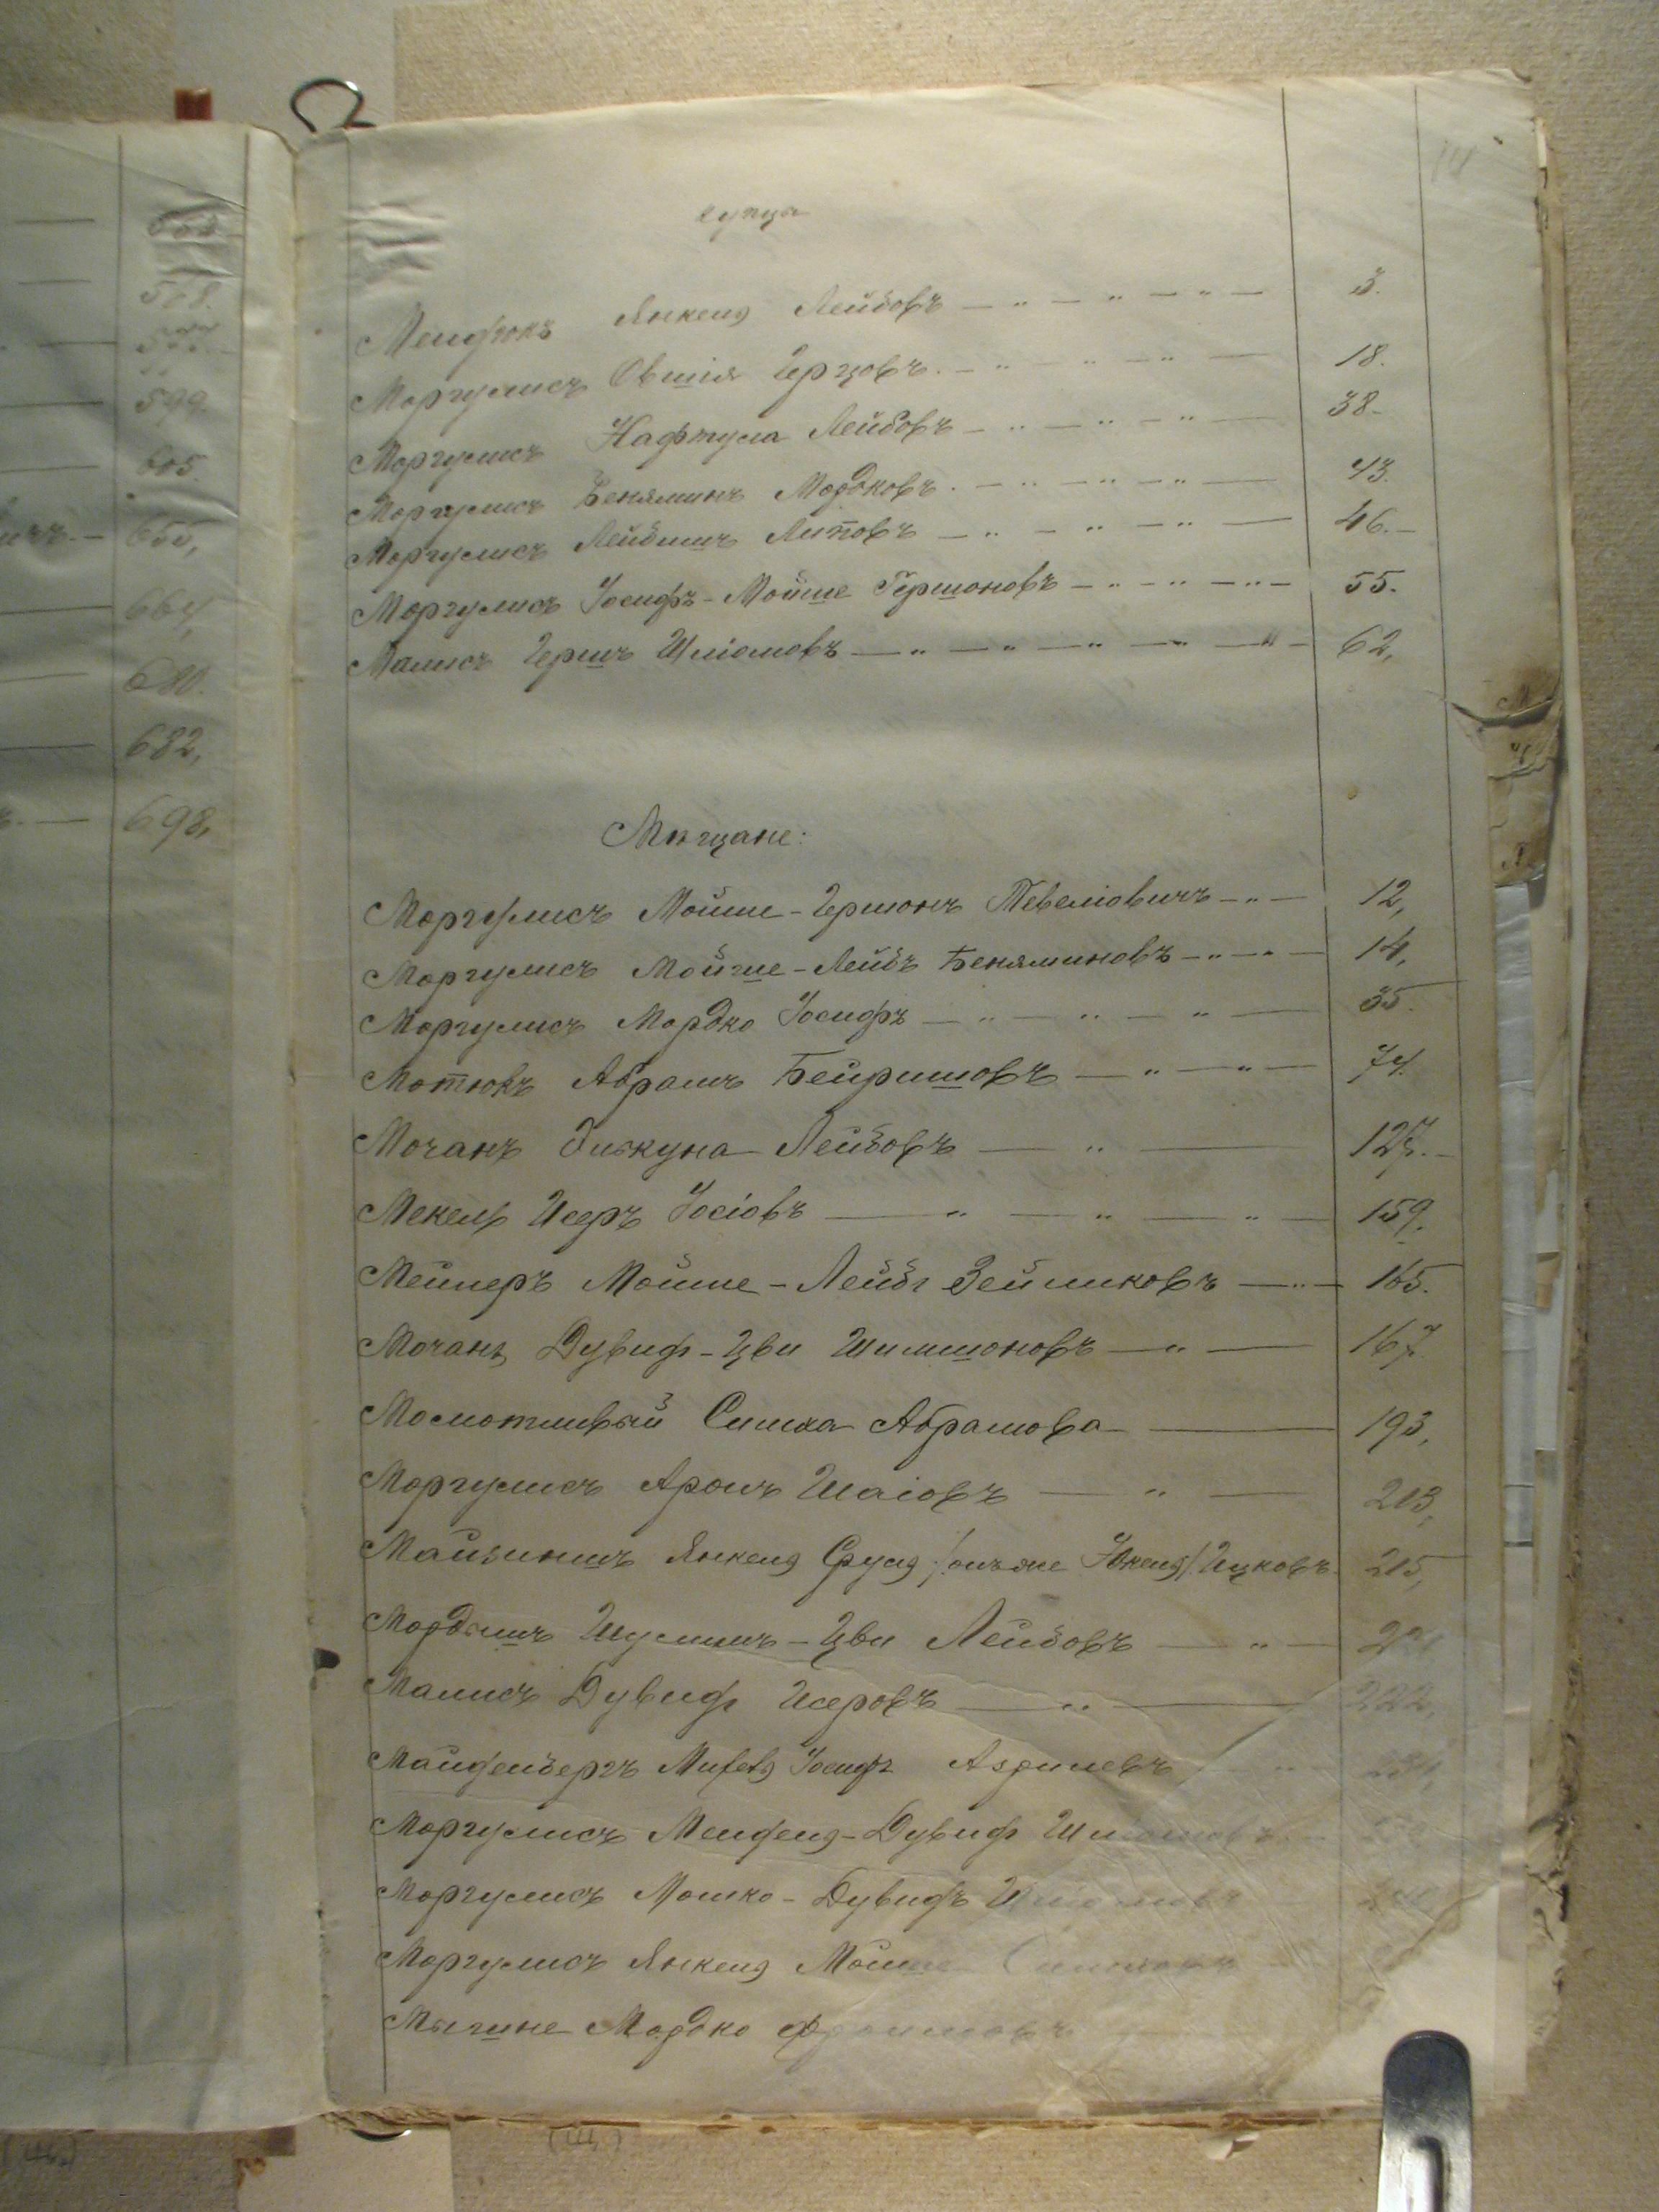 купцы
Мендюкъ Янкель Лейбовъ 3.
Моргулисъ Овшія Герцовъ. 18.
Моргулисъ Нафтула Лейбовъ 38.
Моргулисъ Беняминъ Мордковъ. 43.
Моргулисъ Лейбишъ Липовъ 46.
Моргулисъ Іосифъ-Мойше Гершоновъ 55.
Малисъ Гершъ Шліомовъ 62,
Мѣщане:
Моргулисъ Мойше-Гершонъ Тевеліовичъ 12,
Моргулисъ Мойше-Лейбъ Беняминовъ 14,
Моргулисъ Мордко Іосифъ 35.
Мотюкъ Абрамъ Бейришовъ 74.
Мочанъ Лейбовъ 127.
Мекель Исеръ Іосіовъ 159.
Мейлеръ Мойше-Лейбъ Зейликовъ 165.
Мочанъ Дувидъ-Цви Шимшоновъ 167
Молотливый Симха Абрамова 193,
Моргулисъ Аронъ Шаіовъ 203,
Янкель Сруль /онъ же Ицковъ. 215,
Шулимъ-Цви Лейбовъ
Малисъ Дувидъ Исеровъ 222,
Майденбергъ Іосифъ Азрилевъ
Моргулисъ Мендель-Дувидъ
Моргулисъ Мошко-Дувидъ
Моргулисъ Янкель Мойше
Мордко Фроимовъ
599.
605.
655,
664,
680.
682,
698,